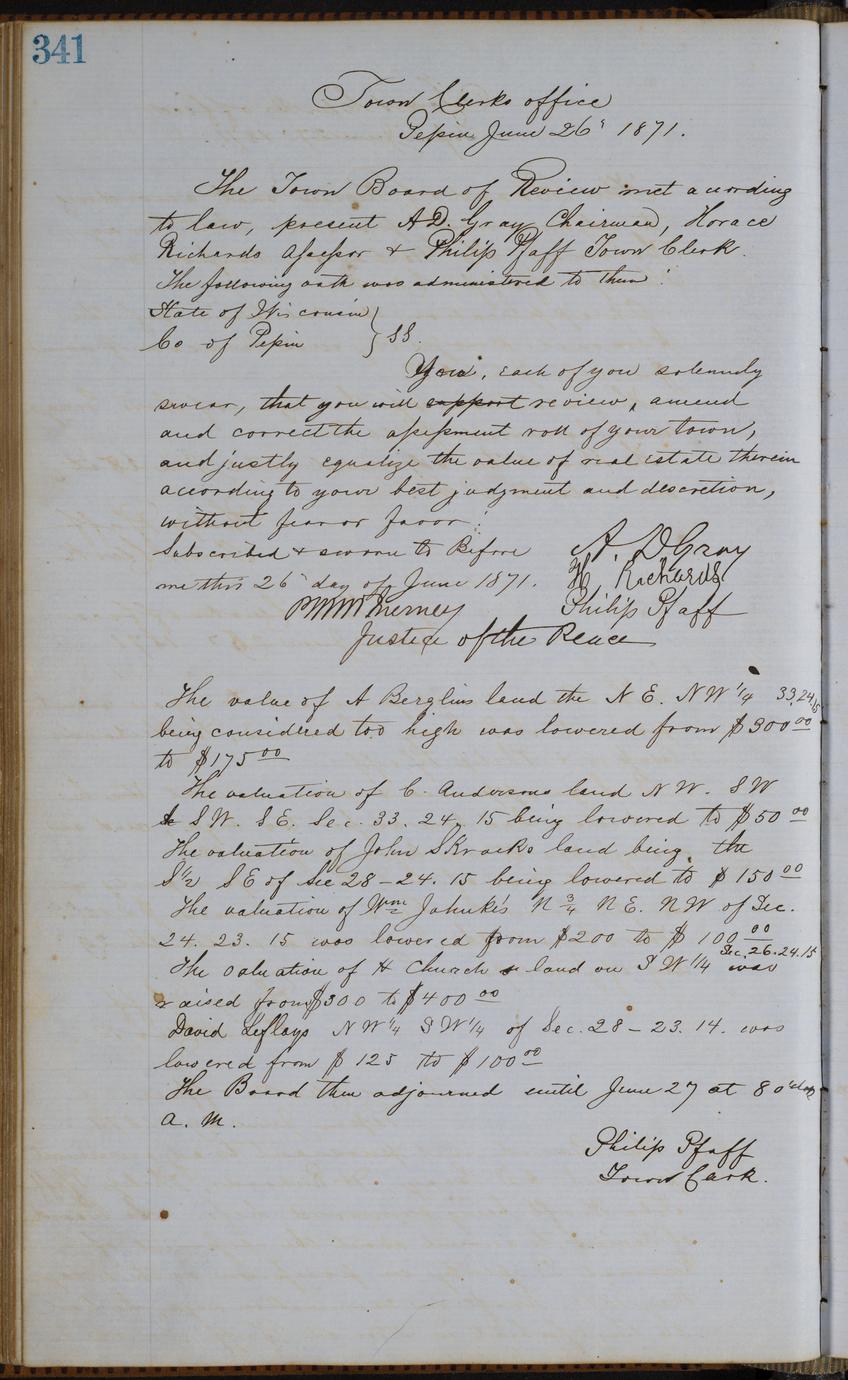 341
Town Clerks office
Pepin June 26' 1871.
The Town Board of Review met acording
to law, present A.D. Gray Chairman, Horace
Richards Assessor & Philip Pfaff Town Clerk.
The following oath was administered to them:
State of Wisconsin
Co of Pepin } SS.
You, each of you solemnly
swear, that you will support review, amend
and correct the assessment roll of your town,
and justly equalize the value of real estate therein
acording to your best judgment and descretion,
without fear or favor.
Subscribed & sworn to Before
me this 26' day of June 1871.
A. D Gray
H. Richards
Philip Pfaff
Justice of the Peace
The value of A Berglins land the N E. NW 1/4 33.24.15
being considered too high was lowered from $300 00
to $175 00
The valuation of C. Andersons land N W. S W
& S W. S E. Sec. 33. 24. 15 being lowered to $50 00
The valuation of John land being the
S 1/2 S E of Sec 28 - 24. 15 being lowered to $150 00
The valuation of Wm Jahnke's N 3/4 N E. N W of Sec.
24. 23. 15 was lowered from $200 to $100 00
The valuation of H Church s land on S W 1/4 Sec. 26. 24. 15 was
raised from $300 to $400 00
David Leflays N W 1/4 S W 1/4 of Sec. 28 - 23. 14. was
lowered from $125 to $100 00
The Board then adjourned until June 27 at 8 o'clock
a. m.
Philip Pfaff
Town Clark.